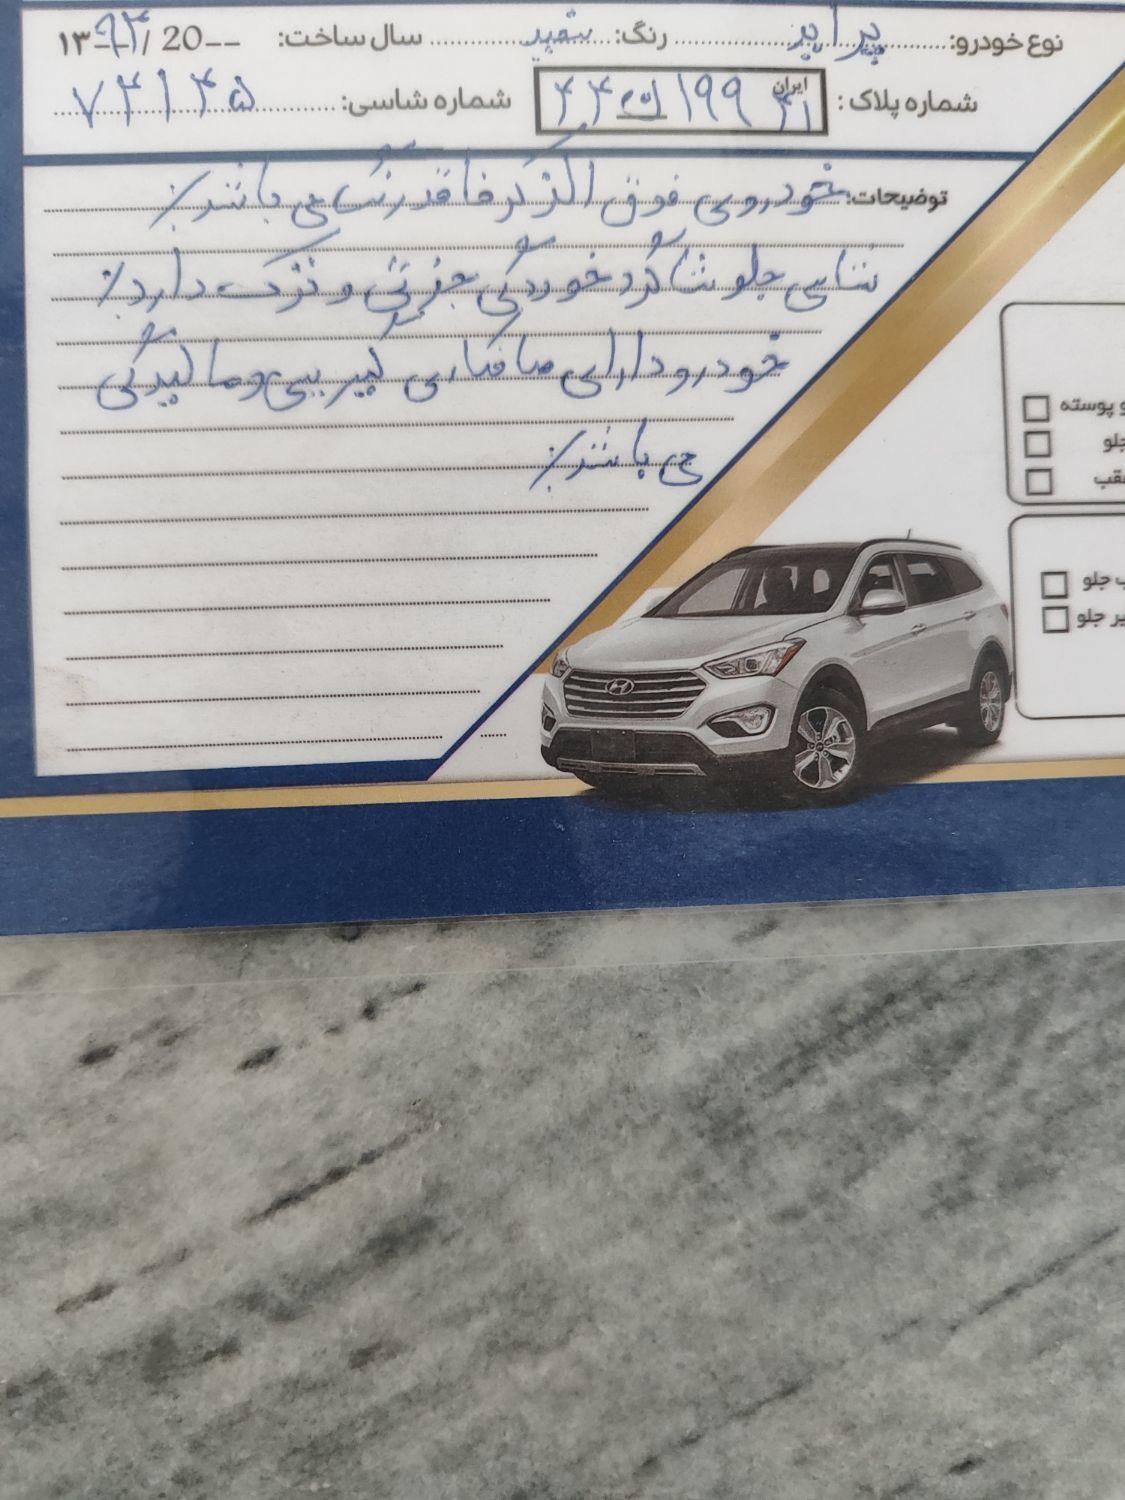 نوع خودرو: پراید رنگ: سفید سال ساخت: ۱۳۹۴ / 20--
شماره پلاک: ایران ۴۱ ۱۹۹ ۴۴ شماره شاسی: ۷۴۱۴۵
توضیحات: خودروی فوق الذکر فاقد رنگ می باشد٪
شاسی جلو شاگرد خوردگی جزئی و ترک دارد٪
خودرو دارای صافکاری لیسه یی و مالیدگی
می باشد٪
و پوسته
جلو
عقب
جلو
جلو